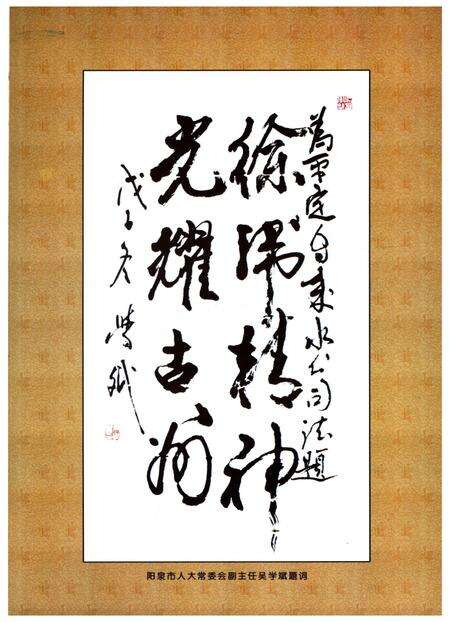 為平定自来水公司题
徐精神
光耀古州
戊子冬 学斌
阳泉市人大常委会副主任吴学斌题词